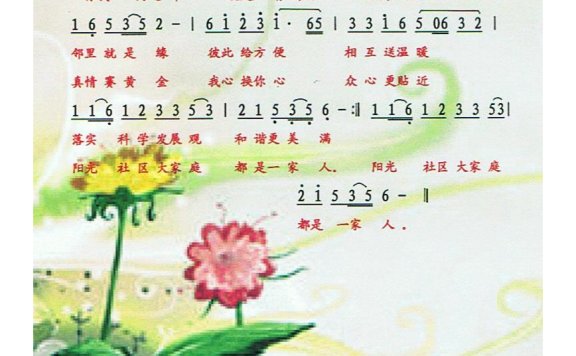 1 6 5 3 5 2 - | 6 1 2 3 1 · 6 5 | 3 3 1 6 5 0 6 3 2 |
邻里 就是 缘 彼此 给方便 相互送温暖
真情赛黄 金 我心换你心 众心更贴近
1 1 6 1 2 3 3 5 3 | 2 1 5 3 5 6 - :‖ 1 1 6 1 2 3 3 5 3 |
落实 科学发展观 和谐更美 满
阳光 社区大家庭 都是一家 人. 阳光 社区大家庭
2 1 5 3 5 6 - ‖
都是 一家 人.